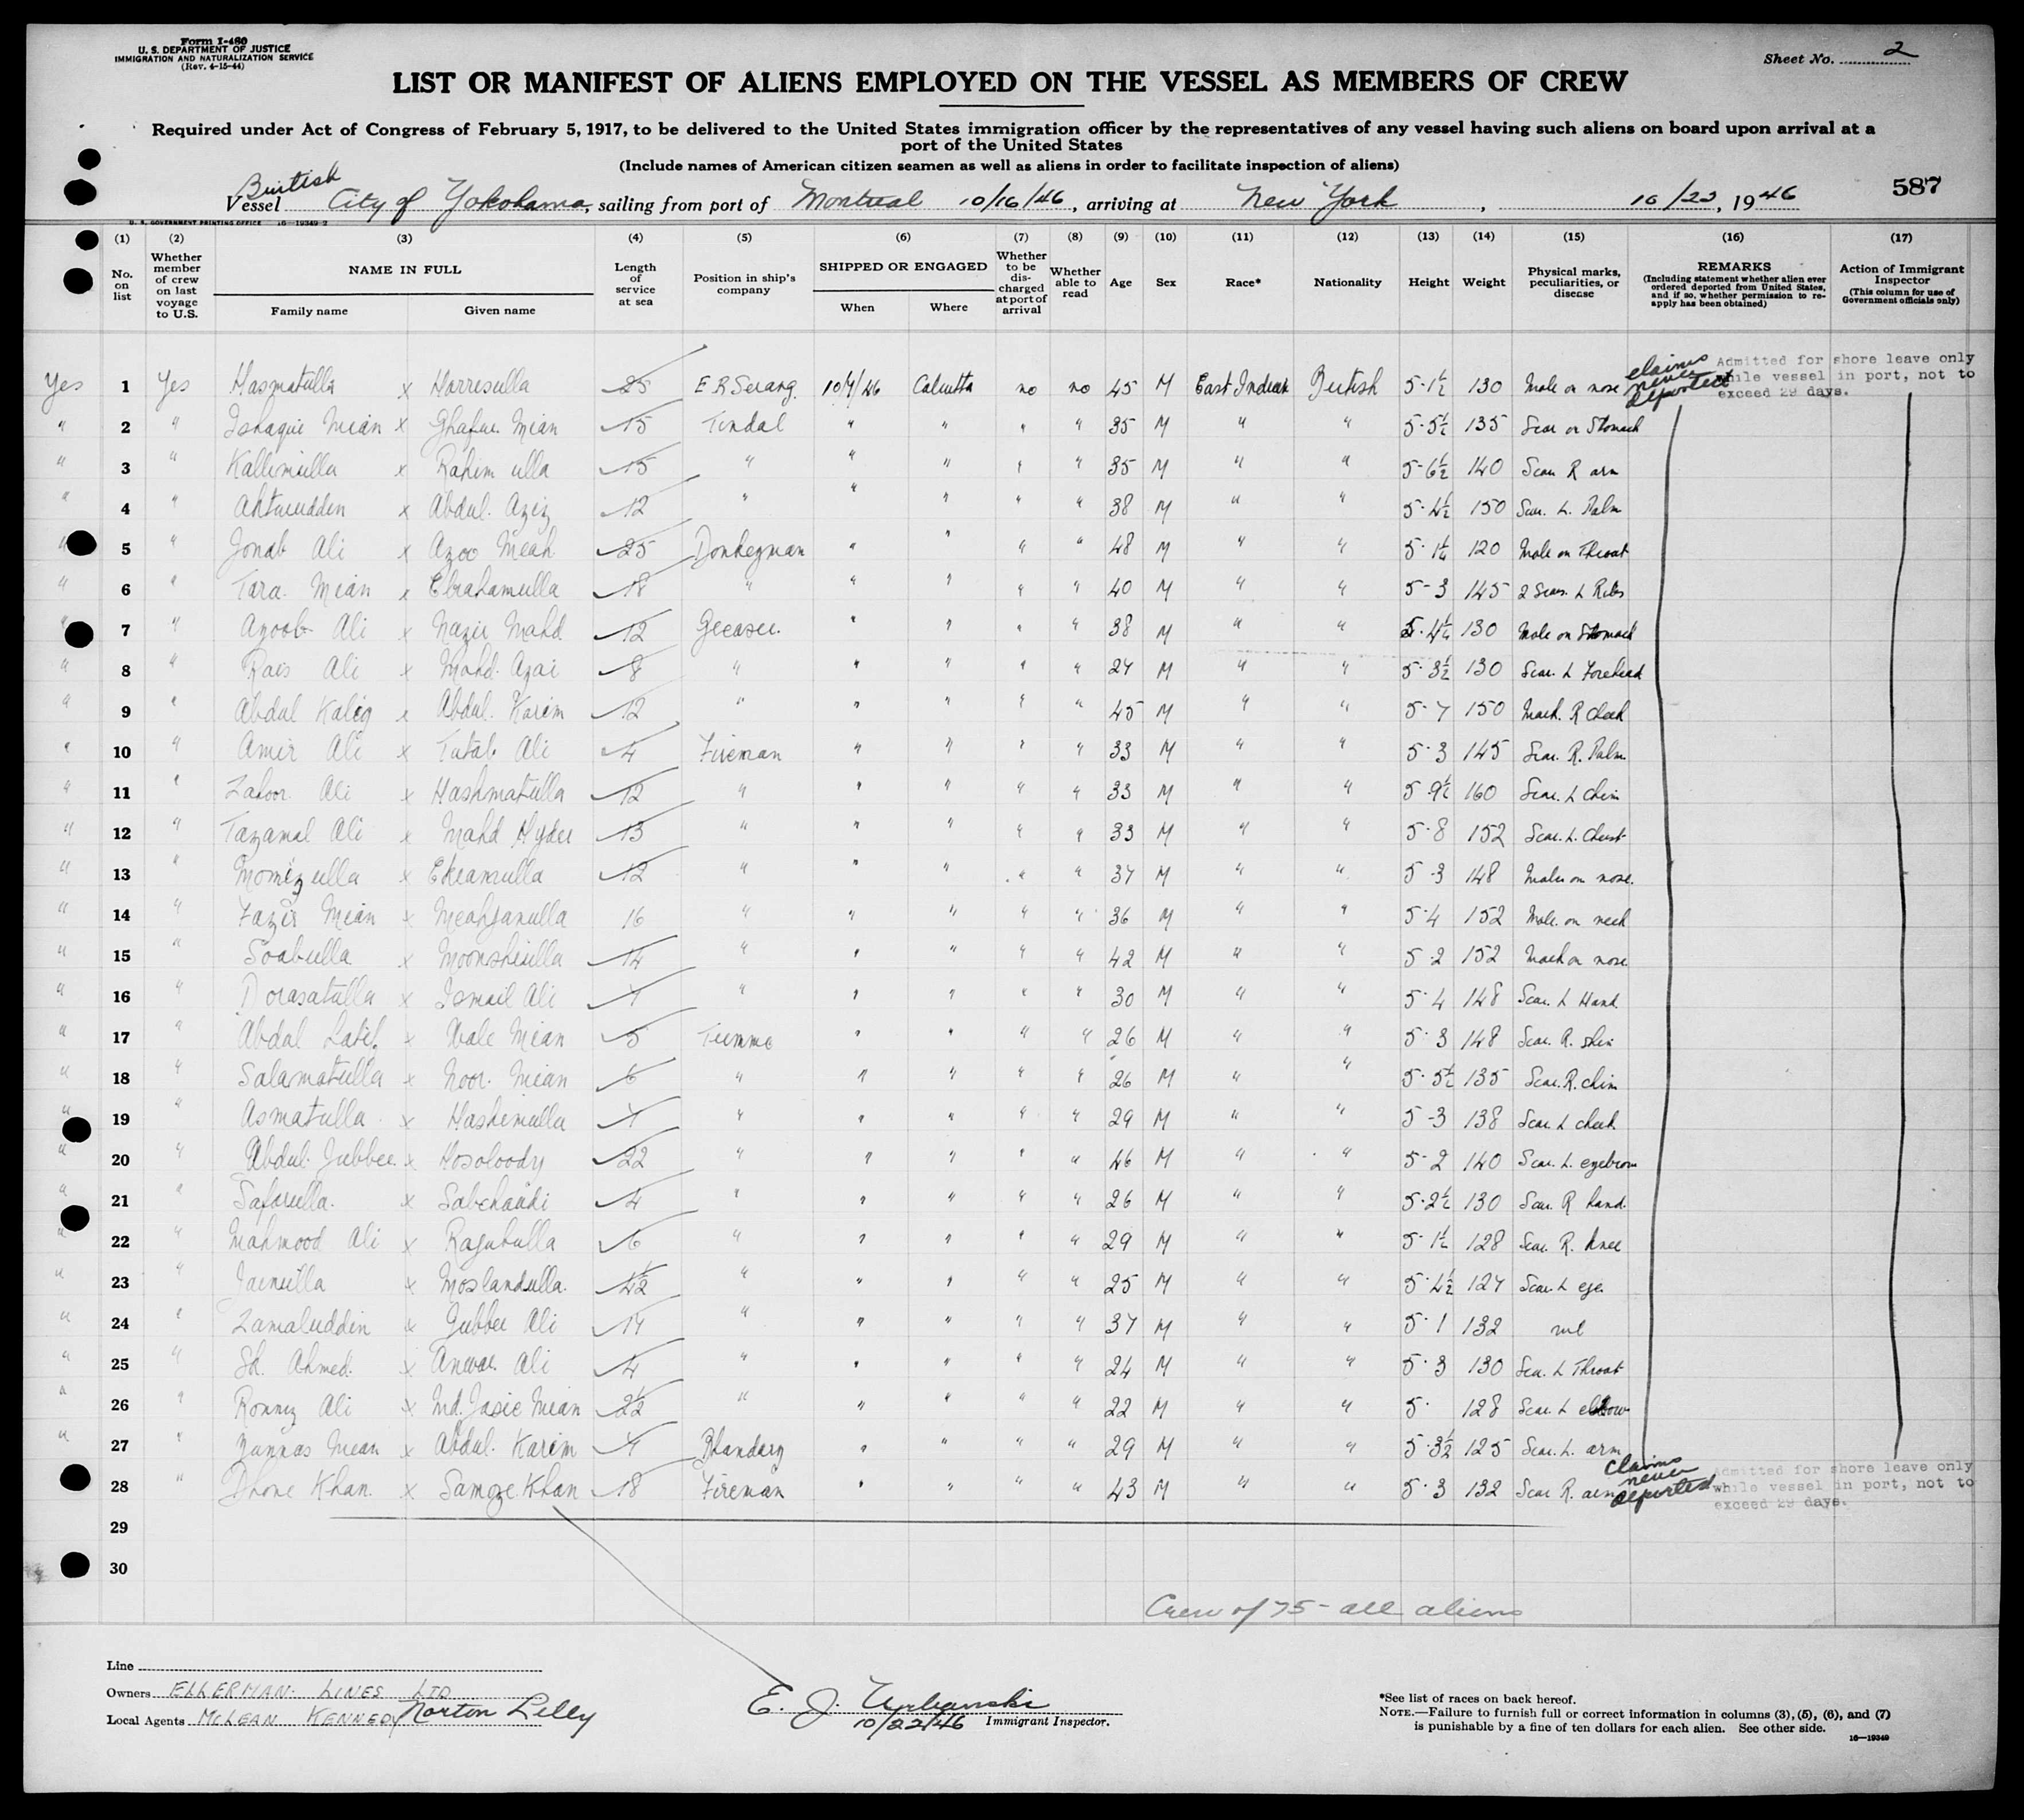 Form I-480
U. S. DEPARTMENT OF JUSTICE
IMMIGRATION AND NATURALIZATION SERVICE
(Rev. 4-15-44)
Sheet No. 2
LIST OR MANIFEST OF ALIENS EMPLOYED ON THE VESSEL AS MEMBERS OF CREW
Required under Act of Congress of February 5, 1917, to be delivered to the United States immigration officer by the representatives of any vessel having such aliens on board upon arrival at a
port of the United States
(Include names of American citizen seamen as well as aliens in order to facilitate inspection of aliens)
587
British
Vessel City of Yokohama, sailing from port of Montreal 10/16/46, arriving at New York, 10/22, 1946
U. S. GOVERNMENT PRINTING OFFICE 16-19349-2
(1) (2) (3) (4) (5) (6) (7) (8) (9) (10) (11) (12) (13) (14) (15) (16) (17)
No. on list
Whether member of crew on last voyage to U.S.
NAME IN FULL
Family name
Given name
Length of service at sea
Position in ship's company
SHIPPED OR ENGAGED
When
Where
Whether to be discharged at port of arrival
Whether able to read
Age
Sex
Race*
Nationality
Height
Weight
Physical marks, peculiarities, or disease
REMARKS
(Including statement whether alien ever ordered deported from United States, and if so, whether permission to reapply has been obtained)
Action of Immigrant Inspector
(This column for use of Government officials only)
Yes 1 Yes Hasmatulla x Harresulla 25 E R Serang 10/7/46 Calcutta no no 45 M East Indian British 5-1½ 130 Mole on nose
claims never deported
Admitted for shore leave only
while vessel in port, not to
exceed 29 days.
" 2 " Ishaque Mian x Ghafur Mian 15 Tindal " " " " 35 M " " 5-5½ 135 Scar on Stomach
" 3 " Kallimulla x Rahim ulla 15 " " " " " 35 M " " 5-6½ 140 Scar R arm
" 4 " x Abdul Aziz 12 " " " " " 38 M " " 5-4½ 150 Scar L. Palm
" 5 " Jonab Ali x Azoo Meah 25 Donkeyman " " " " 48 M " " 120 Mole on Throat
" 6 " Tara Mian x Ebrahamulla 18 " " " " " 40 M " " 5-3 145 2 Scars L Ribs
" 7 " Ayoob Ali x Nazir Mahd 12 Greaser " " " " 38 M " " 130 Mole on Stomach
" 8 " Rais Ali x Mahd. 8 " " " " " 27 M " " 5-3½ 130 Scar L Forehead
" 9 " Abdul Kaliq x Abdul Karim 12 " " " " " 45 M " " 5-7 150 Mark R Cheek
" 10 " Amir Ali x Ali 4 Fireman " " " " 33 M " " 5-3 145 Scar R. Palm
" 11 " Zahoor Ali x Hashmatulla 12 " " " " " 33 M " " 5-9½ 160 Scar L chin
" 12 " Tazamal Ali x Mahd Hyder 13 " " " " " 33 M " " 5-8 152 Scar L. Chest
" 13 " Momizulla x Ekramulla 12 " " " " " 37 M " " 5-3 148 Mole on nose
" 14 " Fazir Mian x Meahjanulla 16 " " " " " 36 M " " 5-4 152 Mole on neck
" 15 " Soabulla x Moonshiulla 14 " " " " " 42 M " " 5-2 152 Mark on nose
" 16 " Dorasatulla x Ismail Ali 7 " " " " " 30 M " " 5-4 148 Scar L Hand
" 17 " Abdal Latif x Mian 5 Trimmer " " " " 26 M " " 5-3 148 Scar R. shin
" 18 " Salamatulla x Noor Mian 6 " " " " " 26 M " " 5-5½ 135 Scar R. chin
" 19 " Asmatulla x Hashimulla 7 " " " " " 29 M " " 5-3 138 Scar L cheek
" 20 " Abdul Jubber x Hosoloody 22 " " " " " 46 M " " 5-2 140 Scar L. eyebrow
" 21 " Safarulla x Sabchandi 4 " " " " " 26 M " " 5-2½ 130 Scar R hand
" 22 " Mahmood Ali x Ragubulla 6 " " " " " 29 M " " 5-1½ 128 Scar R. knee
" 23 " x Moslandulla 4½ " " " " " 25 M " " 5-4½ 127 Scar L eye
" 24 " Zamaluddin x Jubber Ali 17 " " " " " 37 M " " 5-1 132 nil
" 25 " Sd. Ahmed x Anwar Ali 4 " " " " " 24 M " " 5-3 130 Scar L Throat
" 26 " Ali x Md. Jasie Mian 2½ " " " " " 22 M " " 5- 128 Scar L elbow
" 27 " Mean x Abdul Karim 7 Bhandary " " " " 29 M " " 5-3½ 125 Scar L. arm
" 28 " Dhone Khan x Samoze Khan 18 Fireman " " " " 43 M " " 5-3 132 Scar R. arm
claims never deported
Admitted for shore leave only
while vessel in port, not to
exceed 29 days.
29
30
Crew of 75 - all aliens
Line
Owners ELLERMAN LINES LTD
Local Agents McLEAN KENNEDY Norton Lilly
E. J. Urbanski
10/22/46 Immigrant Inspector.
*See list of races on back hereof.
NOTE.—Failure to furnish full or correct information in columns (3), (5), (6), and (7)
is punishable by a fine of ten dollars for each alien. See other side.
16—19349